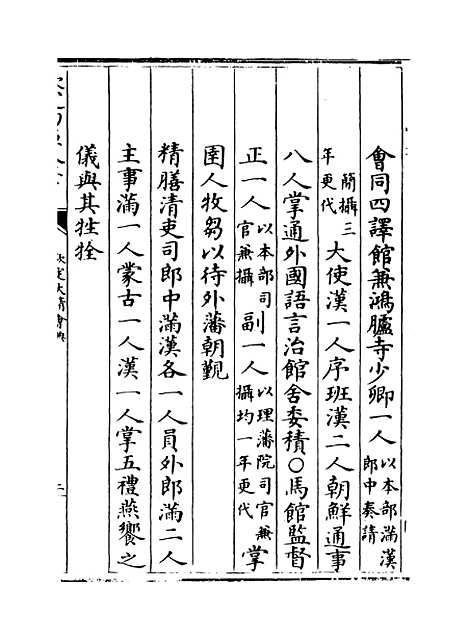 會同四譯館兼鴻臚寺少卿一人以本部滿漢郎中奏請
簡攝三年更代大使漢一人序班漢二人朝鮮通事
八人掌通外國語言治館舍委積○馬館監督
正一人以本部司官兼攝副一人以理藩院司官兼攝均一年更代掌
圉人牧芻以待外藩朝覲
精膳清吏司郎中滿漢各一人員外郎滿二人
主事滿一人蒙古一人漢一人掌五禮燕饗之
儀與其牲牷
欽定大清會典